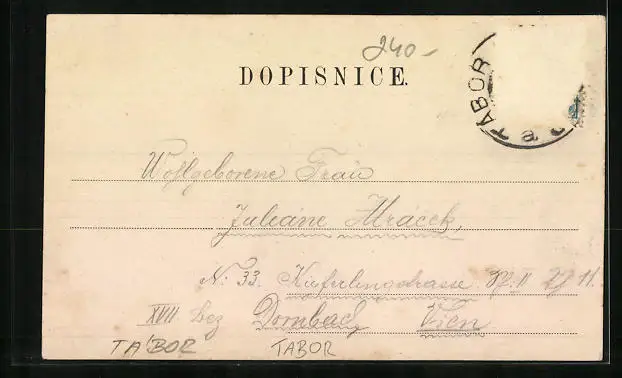 240-
DOPISNICE.
TÁBOR
Wohlgeborene Frau
Juliane Mráček,
N. 33. Kieferlingstrasse
XVII Bez Dornbach Wien
TÁBOR TABOR